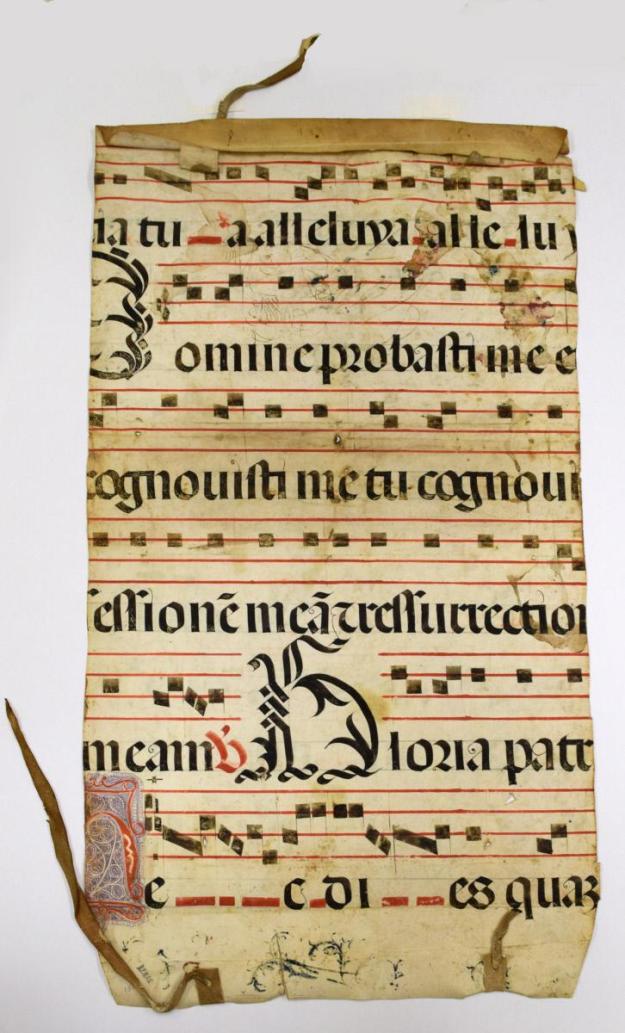 ia tu a alleluya alle lu y
Domine probasti me e
cognouisti me tu cognoui
sessionē meā ⁊ ressurrection
meam ℣ Gloria patr
e c di es quaz